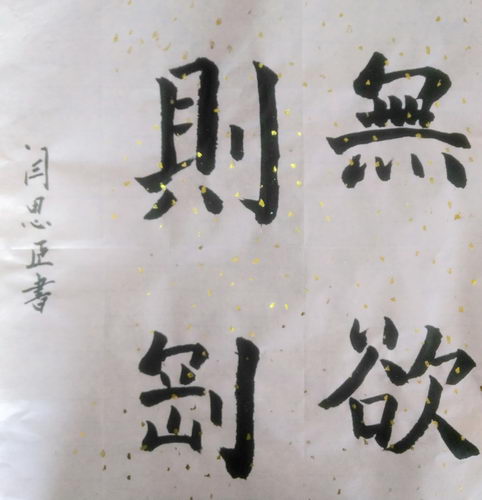 無欲
則剛
闫思正書